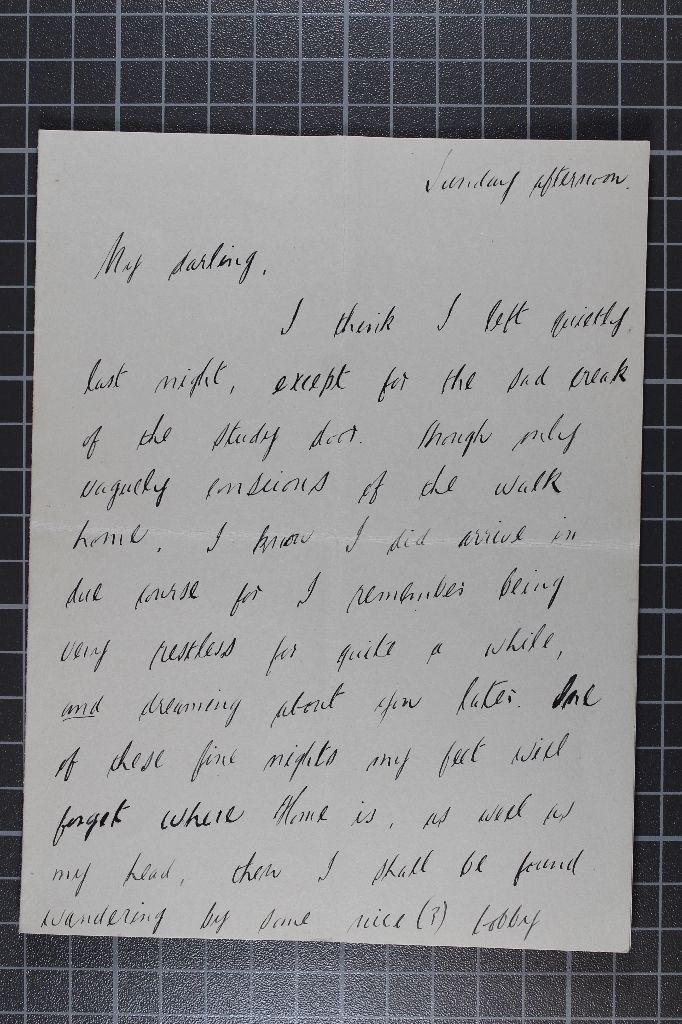 Sunday afternoon.
My darling,
I think I left quietly
last night, except for the sad creak
of the study door. Though only
vaguely conscious of the walk
home, I know I did arrive in
due course for I remember being
very restless for quite a while,
and dreaming about you later. One
of these fine nights my feet will
forget where Home is, as well as
my head, then I shall be found
wandering by some nice (?) bobby